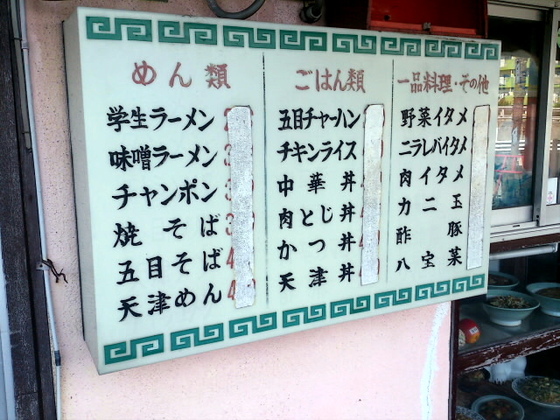 めん類
学生ラーメン
味噌ラーメン
チャンポン
焼そば
五目そば
天津めん
ごはん類
五目チャーハン
チキンライス
中華丼
肉とじ丼
かつ丼
天津丼
一品料理・その他
野菜イタメ
ニラレバイタメ
肉イタメ
カニ玉
酢豚
八宝菜